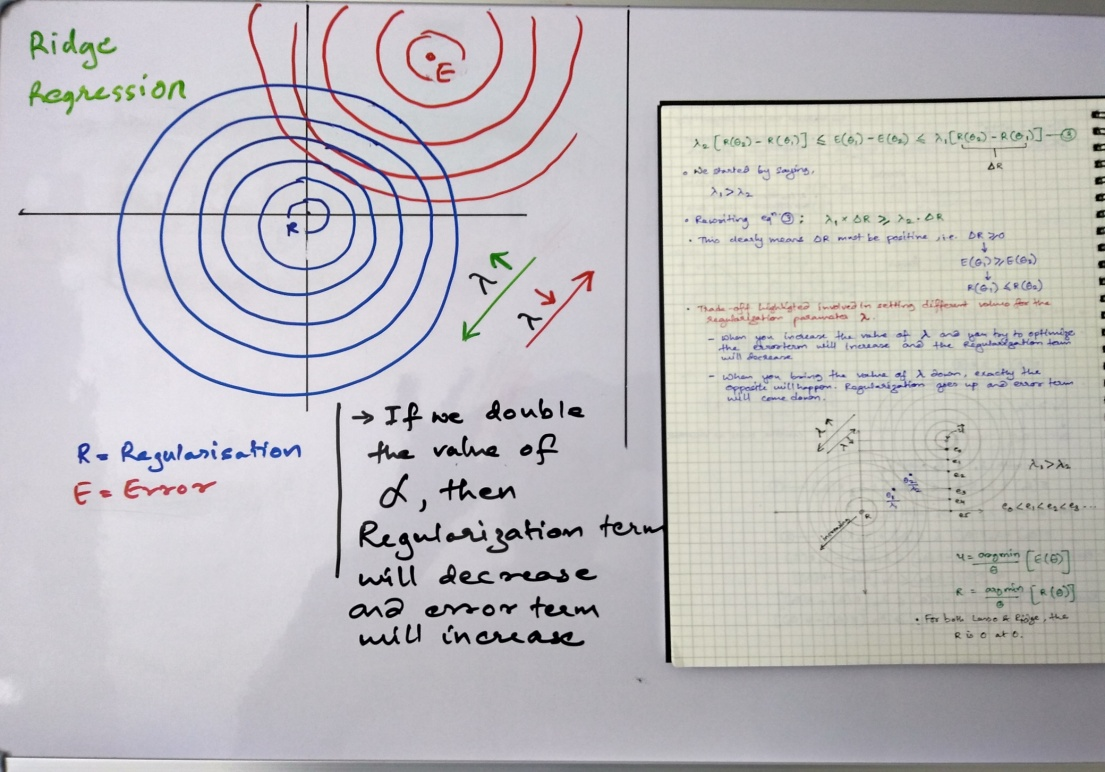 Ridge
Regression
E
R
λ
λ
R = Regularisation
E = Error
→ If we double
the value of
α, then
Regularization term
will decrease
and error term
will increase
λ₂ [R(θ₂) - R(θ₁)] ≤ E(θ₁) - E(θ₂) ≤ λ₁[R(θ₂) - R(θ₁)] —③
ΔR
• We started by saying,
λ₁ > λ₂
• Rewriting eqⁿ ③: λ₁ × ΔR ≥ λ₂ · ΔR
• This clearly means ΔR must be positive, i.e. ΔR ≥ 0
↓
E(θ₁) ≥ E(θ₂)
↓
R(θ₁) ≤ R(θ₂)
• Trade-off highlighted involved in setting different values for the
regularization parameter λ.
- When you increase the value of λ and you try to optimize
the error term will increase and the Regularization term
will decrease
- When you bring the value of λ down, exactly the
opposite will happen. Regularization goes up and error term
will come down.
λ
λ
e₀
e₁
e₂
e₃
e₄
e₅
R
λ₁ > λ₂
e₀ < e₁ < e₂ < e₃ ...
argmin
θ
[E(θ)]
R = argmin
θ
[R(θ)]
• For both Lasso & Ridge, the
R is 0 at 0.